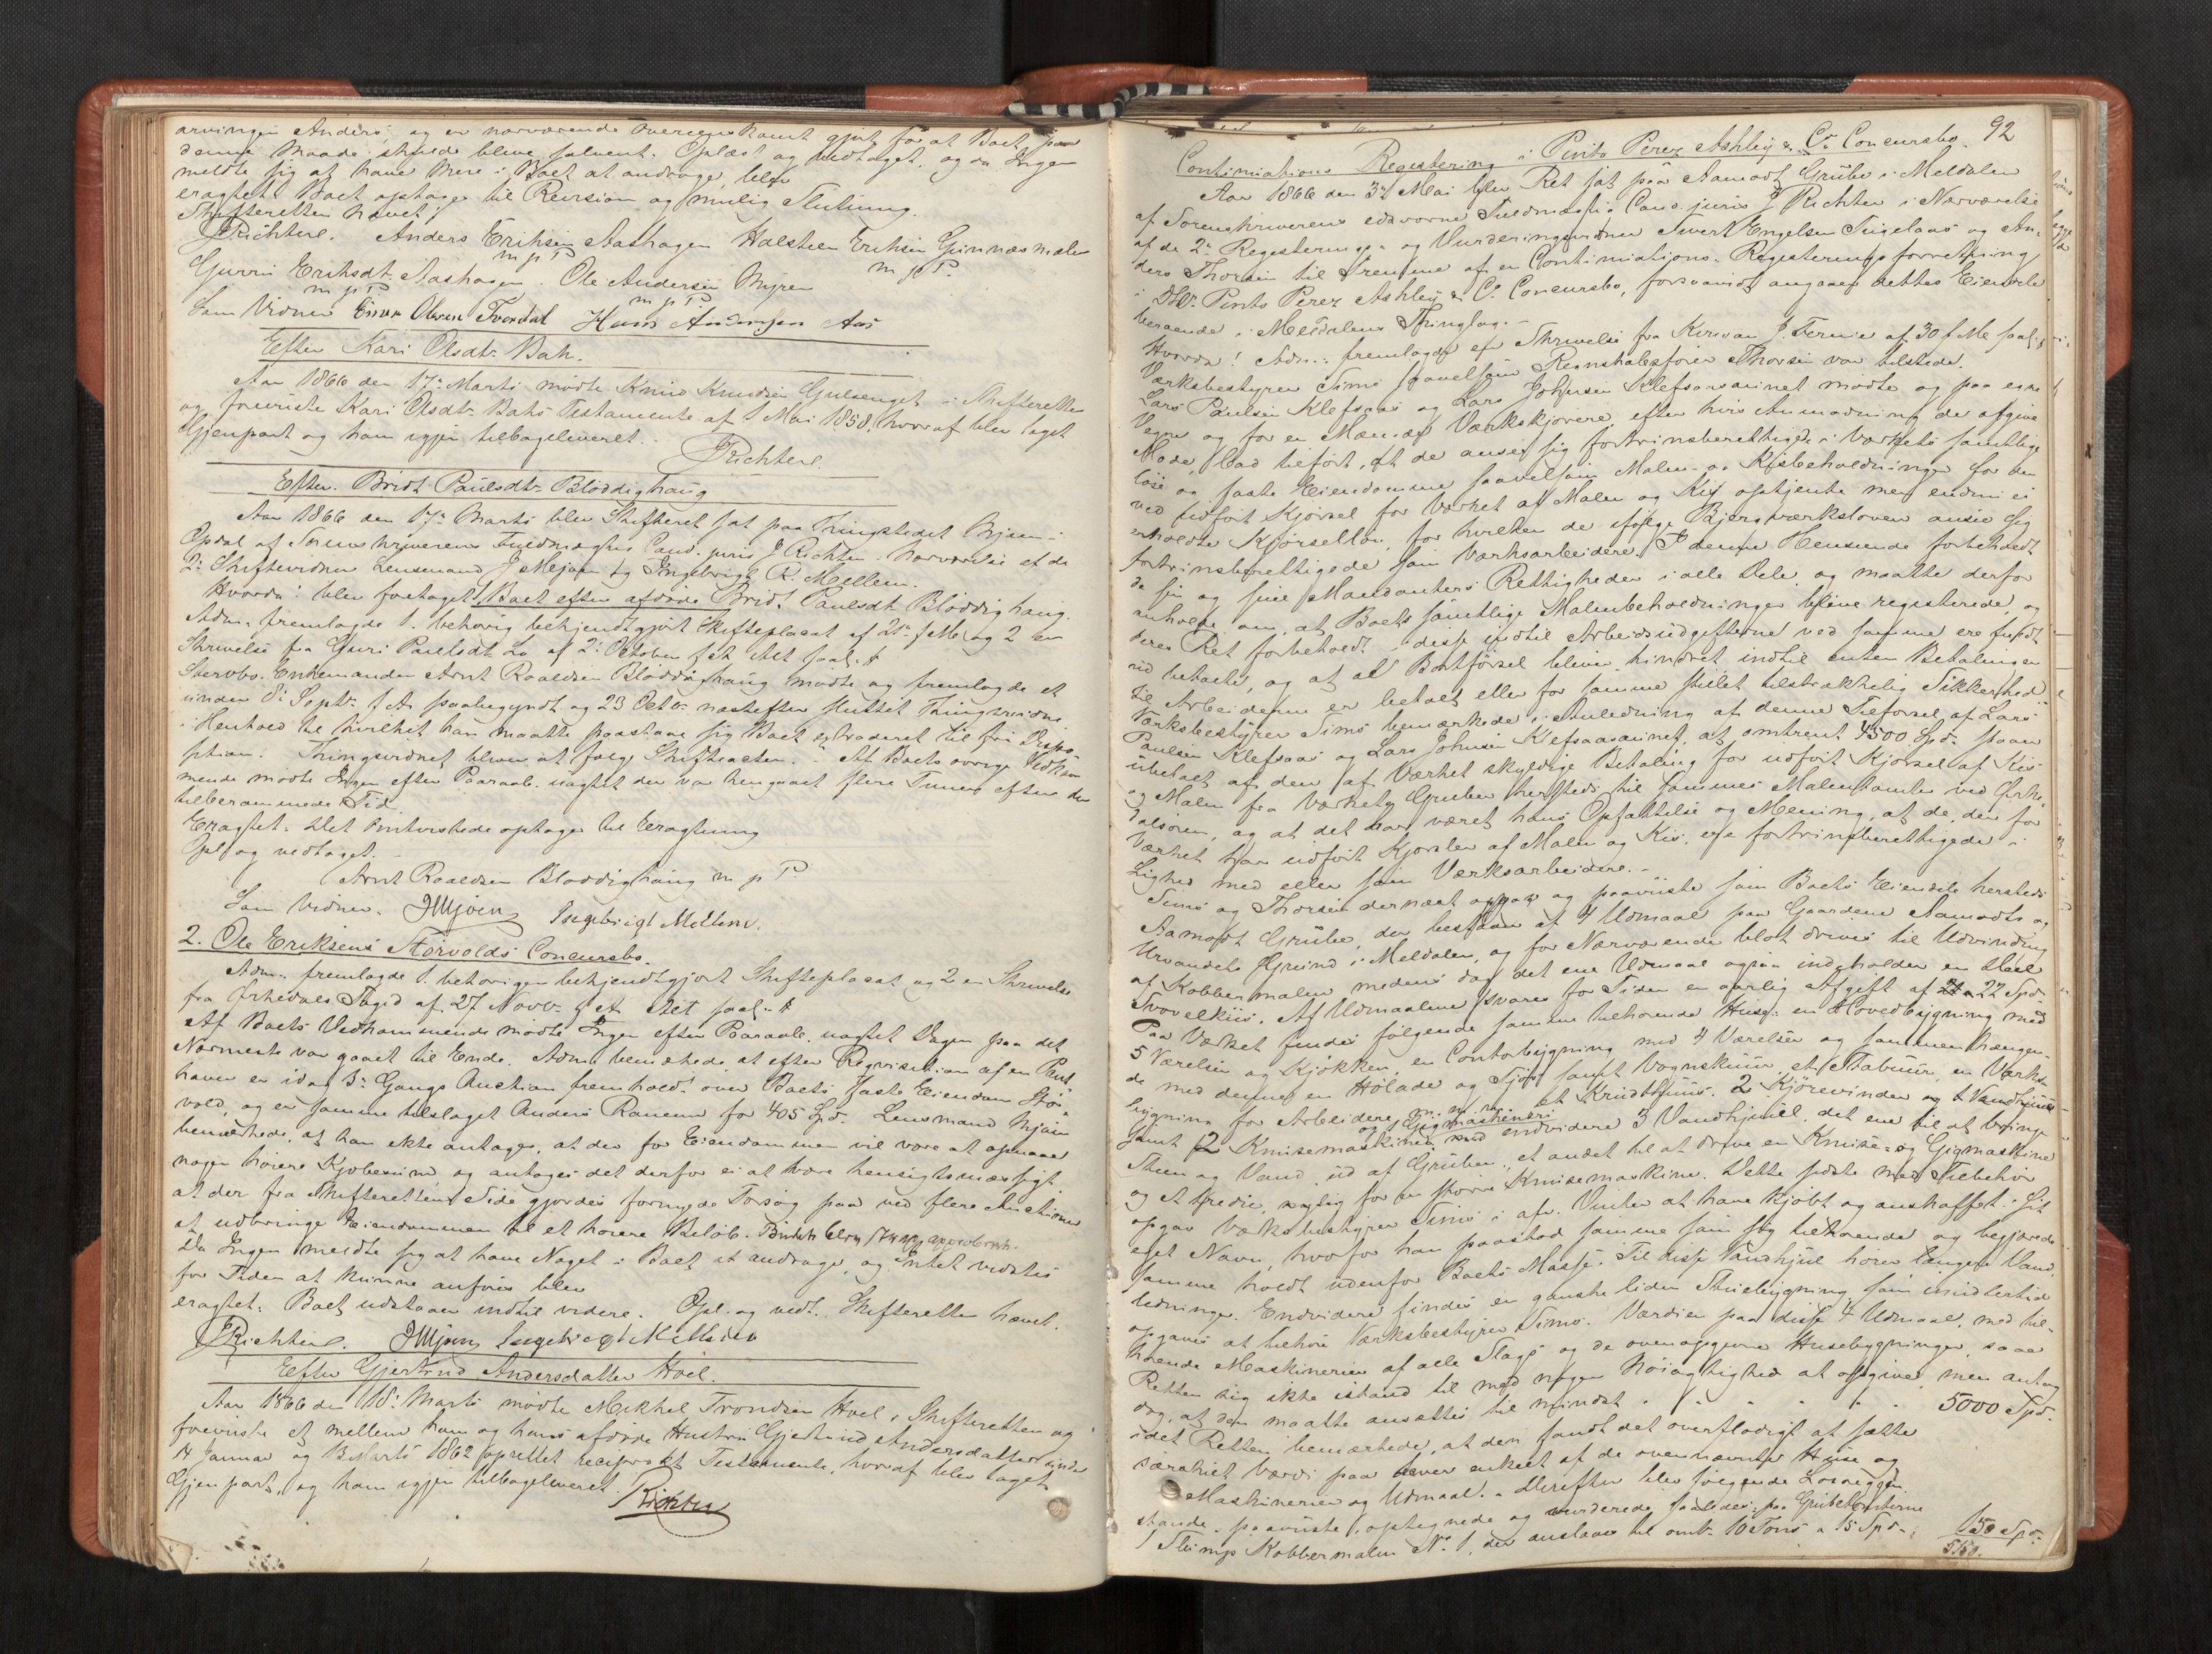 arvingen Anders, og en nærværende Overeenskomst gjort for at Boet paa
denne Maade skulde blive solvent. Oplæst og vedtaget, og da Ingen
meldte sig at have Mere i Boet at andrage, blev
eragtet: Boet optages til Revision og mulig Slutning.
Skifteretten hævet.
JRichter. Anders Eriksen Aashagen Halsteen Eriksen Grinnæsmælen
m p P m p P.
Gurrii Eriksdt. Aashagen. Ole Andersen Myren
m p P m p P
Som Vidner Einar Olsen Tverdal Hans Andersen Aas
Efter Kari Olsdtr. Bak.
Aar 1866 den 17de Marts mødte Knud Knudsen Gulsenget i Skifteretten
og foreviste Kari Olsdtr. Baks Testamente af 1 Mai 1858, hvoraf blev taget
Gjenpart og ham igjen tilbageleveret.
JRichter.
Efter Brit Paulsdtr. Blöddighaug
Aar 1866 den 17de Marts blev Skifteret sat paa Thingstedet Mjøen i
Opdal af Sorenskriverens Fuldmægtig Cand. juris J Richter i Nærværelse af de
2de Skiftevidner Lensmand J Mjøen og Ingebrigt R. Mellem.
Hvorda: blev foretaget Boet efter afdøde Brit Paulsdt Blöddighaug.
Adm. fremlagde 1. behørig bekjendtgjort Skifteplacat af 21de f M og 2 en
Skrivelse fra Guri Paulsdt Lo af 2de October f A Alt saal. #
Stervbo Enkemanden Arnt Roaldsen Blöddighaug mødte og fremlagde et
under 8de Septr. f A. paabegyndt og 23 Octbr. næstefter sluttet Thingsvidne
i Henhold til hvilket han maatte paastaae sig Boet extraderet til fri Dispo-
sition. Thingsvidnet bliver at følge Skifteacten. Af Boets øvrige Vedkom-
mende mødte Ingen efter Paaraab, uagtet der var hengaaet flere Timer efter den
tilberammede Tid.
Eragtet: Det Passerede optages til Eragtning
Opl. og vedtaget.
Arnt Roaldsen Blöddighaug m p P.
Som Vidner. JMjøen Ingebrigt Mellem.
2. Ole Eriksens Störvolds Concursbo.
Adm. fremlagde 1. behørigen bekjendtgjort Skifteplacat og 2 en Skrivelse
fra Örkedals Fogd af 27 Novbr. f A. Alt saal. #
Af Boets Vedkommende mødte Ingen efter Paaraab, uagtet Dagen paa det
Nærmeste var gaaet til Ende. Adm. bemærkede, at efter Reqvisition af en Pant-
haver er idag 3de Gangs Auction fremholdt over Boets faste Eiendom Stör-
vold, og er samme tilslaget Anders Ranemo for 405 Spd. Lensmand Mjøen
bemærkede, at han ikke antager, at der for Eiendommen vil være at opnaae
nogen høiere Kjøbesum, og antages det derfor ei at være hensigtsmæssigt,
at der fra Skifterettens Side gjordes fornyede Forsøg paa ved flere Auctioner
at udbringe Eiendommen til et høiere Beløb. Budet blev strax approberet.
Da Ingen meldte sig at have Noget i Boet at andrage, og Intet vidstes
for Tiden at kunne anføres blev
eragtet: Boet udstaaer indtil videre. Opl. og vedt. Skifteretten hævet.
JRichter. JMjøen Ingebrigt Mellem
Efter Gjertrud Andersdatter Hoel.
Aar 1866 den 18de Marts mødte Mikkel Trondsen Hoel i Skifteretten og
foreviste et mellem ham og hans afdøde Hustru Gjertrud Andersdatter under
14 Januar og 13 Marts 1862 oprettet reciprokt Testamente, hvoraf blev taget
Gjenpart, og ham igjen tilbageleveret. Richter
92
Continuations Registering i Pinto Perez Ashley & Co Concursbo.
Aar 1866 den 3de Mai blev Ret sat paa Aamodt Grube i Meldalen
af Sorenskriverens edsvorne Fuldmægtig Cand. juris J Richter i Nærværelse
af de 2de Registerings- og Vurderingsvidner Sivert Engelsen Singelaas og An-
ders Thorsen til Fremme af en Continuations-Registeringsforretning
i DHrr. Pinto Perez Ashley & Co Concursbo, forsaavidt angaaer dettes Eiendele
beroende i Meldalens Thinglag.
Hvorda! Adm. fremlagde en Skrivelse fra Kirwan J. Fernie af 30 f M saal. #
Værksbestyrer Sims saavelsom Regnskabsfører Thorsen var tilstede.
Lars Paulsen Klefsaas og Lars Johnsen Klefsaasaunet mødte og paa egne
Vegne og for en Mængde Værkskjørere, efter hvis Anmodning de afgive
Møde, lod tilført, at de anser sig fortrinsberettigede i Værkets samtlige
løse og faste Eiendomme saavelsom Malm- og Kisbeholdninger for den
ved udført Kjørsel for Værket af Malm og Kis optjente men endnu ei
erholdte Kjørselløn, for hvilken de ifølge Bjergværksloven ansee sig
fortrinsberettigede som Værksarbeidere. I denne Henseende forbeholdt
de sin og sine Mandanters Rettigheder i alle Dele, og maatte derfor
anholde om, at Boets samtlige Malmbeholdninger bleve registerede, og
deres Ret forbeholdt i disse indtil Arbeidsudgifterne ved samme ere fuldt
ud betalte, og at al Bortførsel bliver hindret indtil enten Betalingen
til Arbeiderne er betalt eller for samme stillet tilstrækkelig Sikkerhed.
Værksbestyrer Sims bemærkede i Anledning af denne Tilførsel af Lars
Paulsen Klefsaas og Lars Johnsen Klefsaasaunet, at omtrent 4500 Spd. staaer
ubetalt af den af Værket skyldige Betaling for udført Kjørsel af Kis
og Malm fra Værkets Gruber hersteds til sammes Malmtomter ved Örke-
dalsøren, og at det har været hans Opfattelse og Mening, at de, der for
Værket har udført Kjørslen af Malm og Kis, ere fortrinsberettigede i
Lighed med eller som Værksarbeidere.
Sims og Thorsen dernæst opgav og paaviste som Boets Eiendele hersteds
Aamodt Grube, der bestaaer af 4 Udmaal paa Gaardene Aamodts og
Urvandets Grund i Meldalen, og for Nærværende blot drives til Udvinding
af Kobbermalm medens dog det ene Udmaal ogsaa indeholder en Deel
Svovelkiis. Af Udmaalene svares for Tiden en aarlig Afgift af 22 Spd.
Paa Værket findes følgende samme tilhørende Huse: en Hovedbygning med
5 Værelser og Kjøkken, en Contorbygning med 4 Værelser og sammenhængen-
de med denne en Hølade og Fjøs samt Vognskuur, et Stabuur, en Værks-
bygning for Arbeidere m. m. et Krudthuus. 2 Kjørevinder og 1 Vandpumpe
samt 2 Knusemaskiner og 1 Gigmaskineri endvidere 3 Vandhjuul, det ene til at bringe
Steen og Vand ud af Gruben, et andet til at drive en Knuse- og Gigmaskine
og et tredie, nylig for en større Knusemaskine. Dette sidste med Tilbehør
opgav Værksbestyrer Sims i afv. Vinter at have kjøbt og anskaffet i sit
eget Navn, hvorfor han paastod samme som sig tilhørende og begjærede
samme holdt udenfor Boets Masse. Til disse Vandhjul hører længere Vand-
ledninger. Endvidere findes en ganske liden Stuebygning, som imidlertid
opgaves at tilhøre Værksbestyrer Sims. Værdien paa disse 4 Udmaal, med til-
hørende Maskinerier af alle Slags og de ovenopgivne Husebygninger, saae
Retten sig ikke istand til med nogen Nøiagtighed at opgive, men antog
dog, at den maatte ansættes til mindst . . . . . . 5000 Spd.
idet Retten bemærkede, at den fandt det overflødigt at sætte
særskilt Værdi paa hver enkelt af de ovennævnte Huse og
Maskinerier og Udmaal. Derefter blev følgende Løsøregjen-
stande paaviste, optegnede og vurderede saaledes: paa Grubetomterne
1 Slump Kobbermalm No 1, der anslaaes til omtr. 10 Tons a 15 Spd. 150 Spd.
5150.